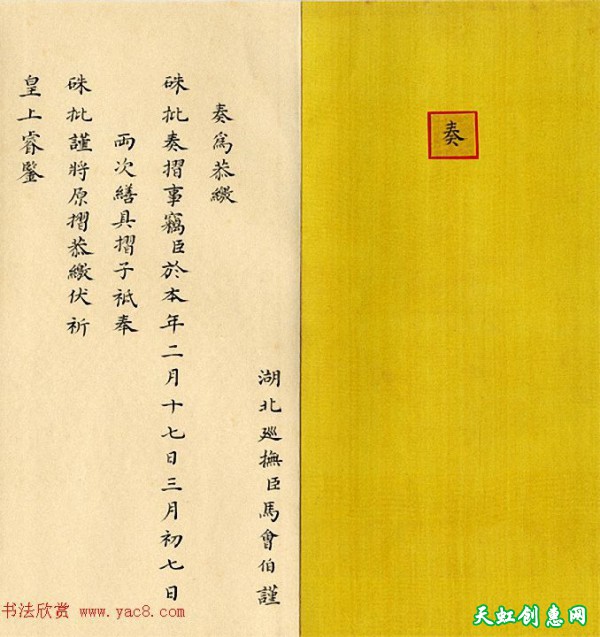 奏
湖北廵撫臣馬會伯謹
奏爲恭繳
硃批奏摺事竊臣於本年二月十七日三月初七日
兩次繕具摺子祗奉
硃批謹將原摺恭繳伏祈
皇上睿鑒
书法欣赏 www.yac8.com
天虹创惠网